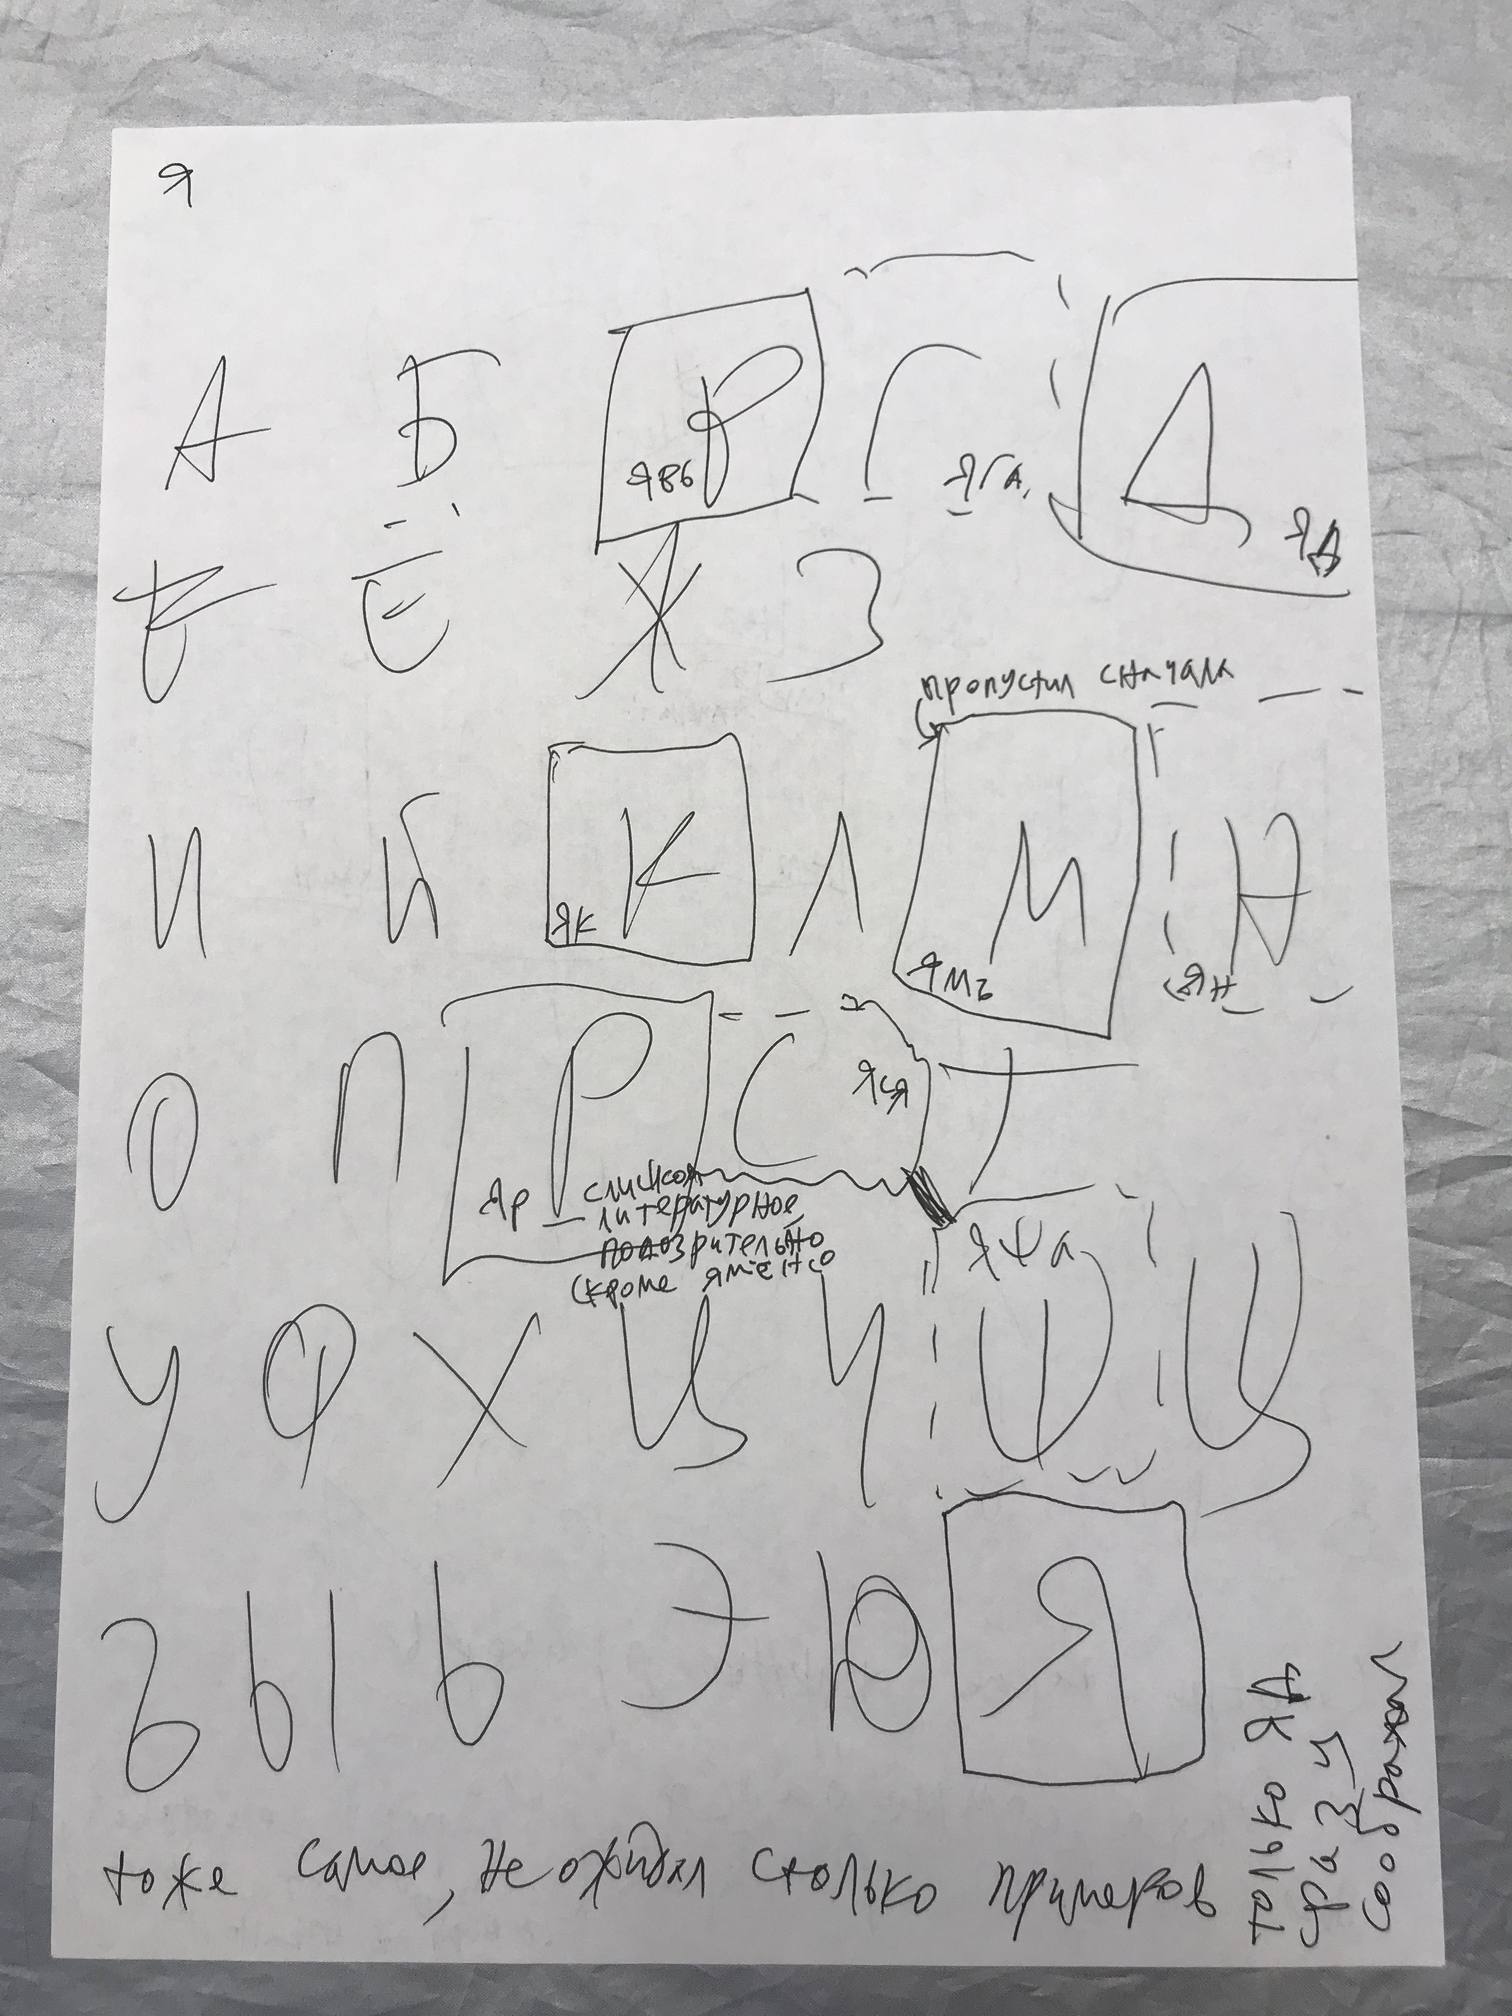 я
А Б В Г Д
явь яга. яд
Е Ё Ж З
пропустил сначала
И Й К Л М Н
як ямб (ян
О П Р С Т
яр — яся
слишком
литературное,
подозрительно
(кроме
яша
У Ф Х Ц Ч Ш Щ
Ъ Ы Ь Э Ю Я
тоже самое, не ожидал столько примеров
только яд
сразу
сообразил